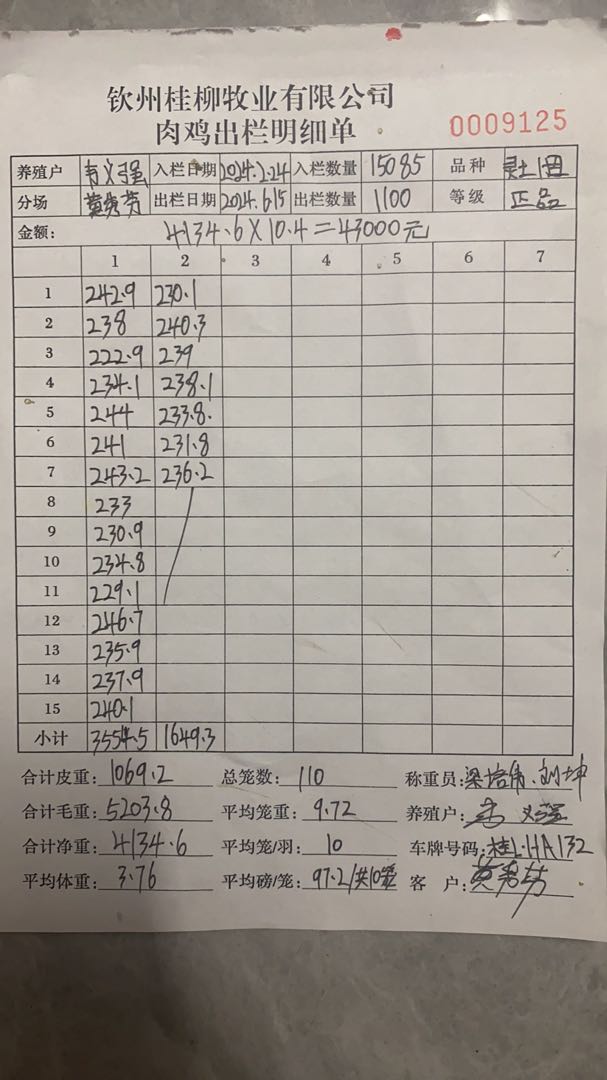 钦州桂柳牧业有限公司
肉鸡出栏明细单
0009125
养殖户 入栏日期 2024.2.24 入栏数量 15085 品种
分场 黄秀芳 出栏日期 2024.6.15 出栏数量 1100 等级 正品
金额： 4134.6×10.4=43000元
1 2 3 4 5 6 7
1 242.9 230.1
2 238 240.3
3 222.9 239
4 234.1 238.1
5 244 233.8.
6 241 231.8
7 243.2 236.2
8 233
9 230.9
10 234.8
11 229.1
12 246.7
13 235.9
14 237.9
15 240.1
小计 3554.5 1649.3
合计皮重：1069.2 总笼数：110 称重员：梁培伟、刘坤
合计毛重：5203.8 平均笼重：9.72 养殖户：
合计净重：4134.6 平均笼/羽：10 车牌号码：桂L·HA132
平均体重：3.76 平均磅/笼：97.2/共10笼 客 户：黄秀芳